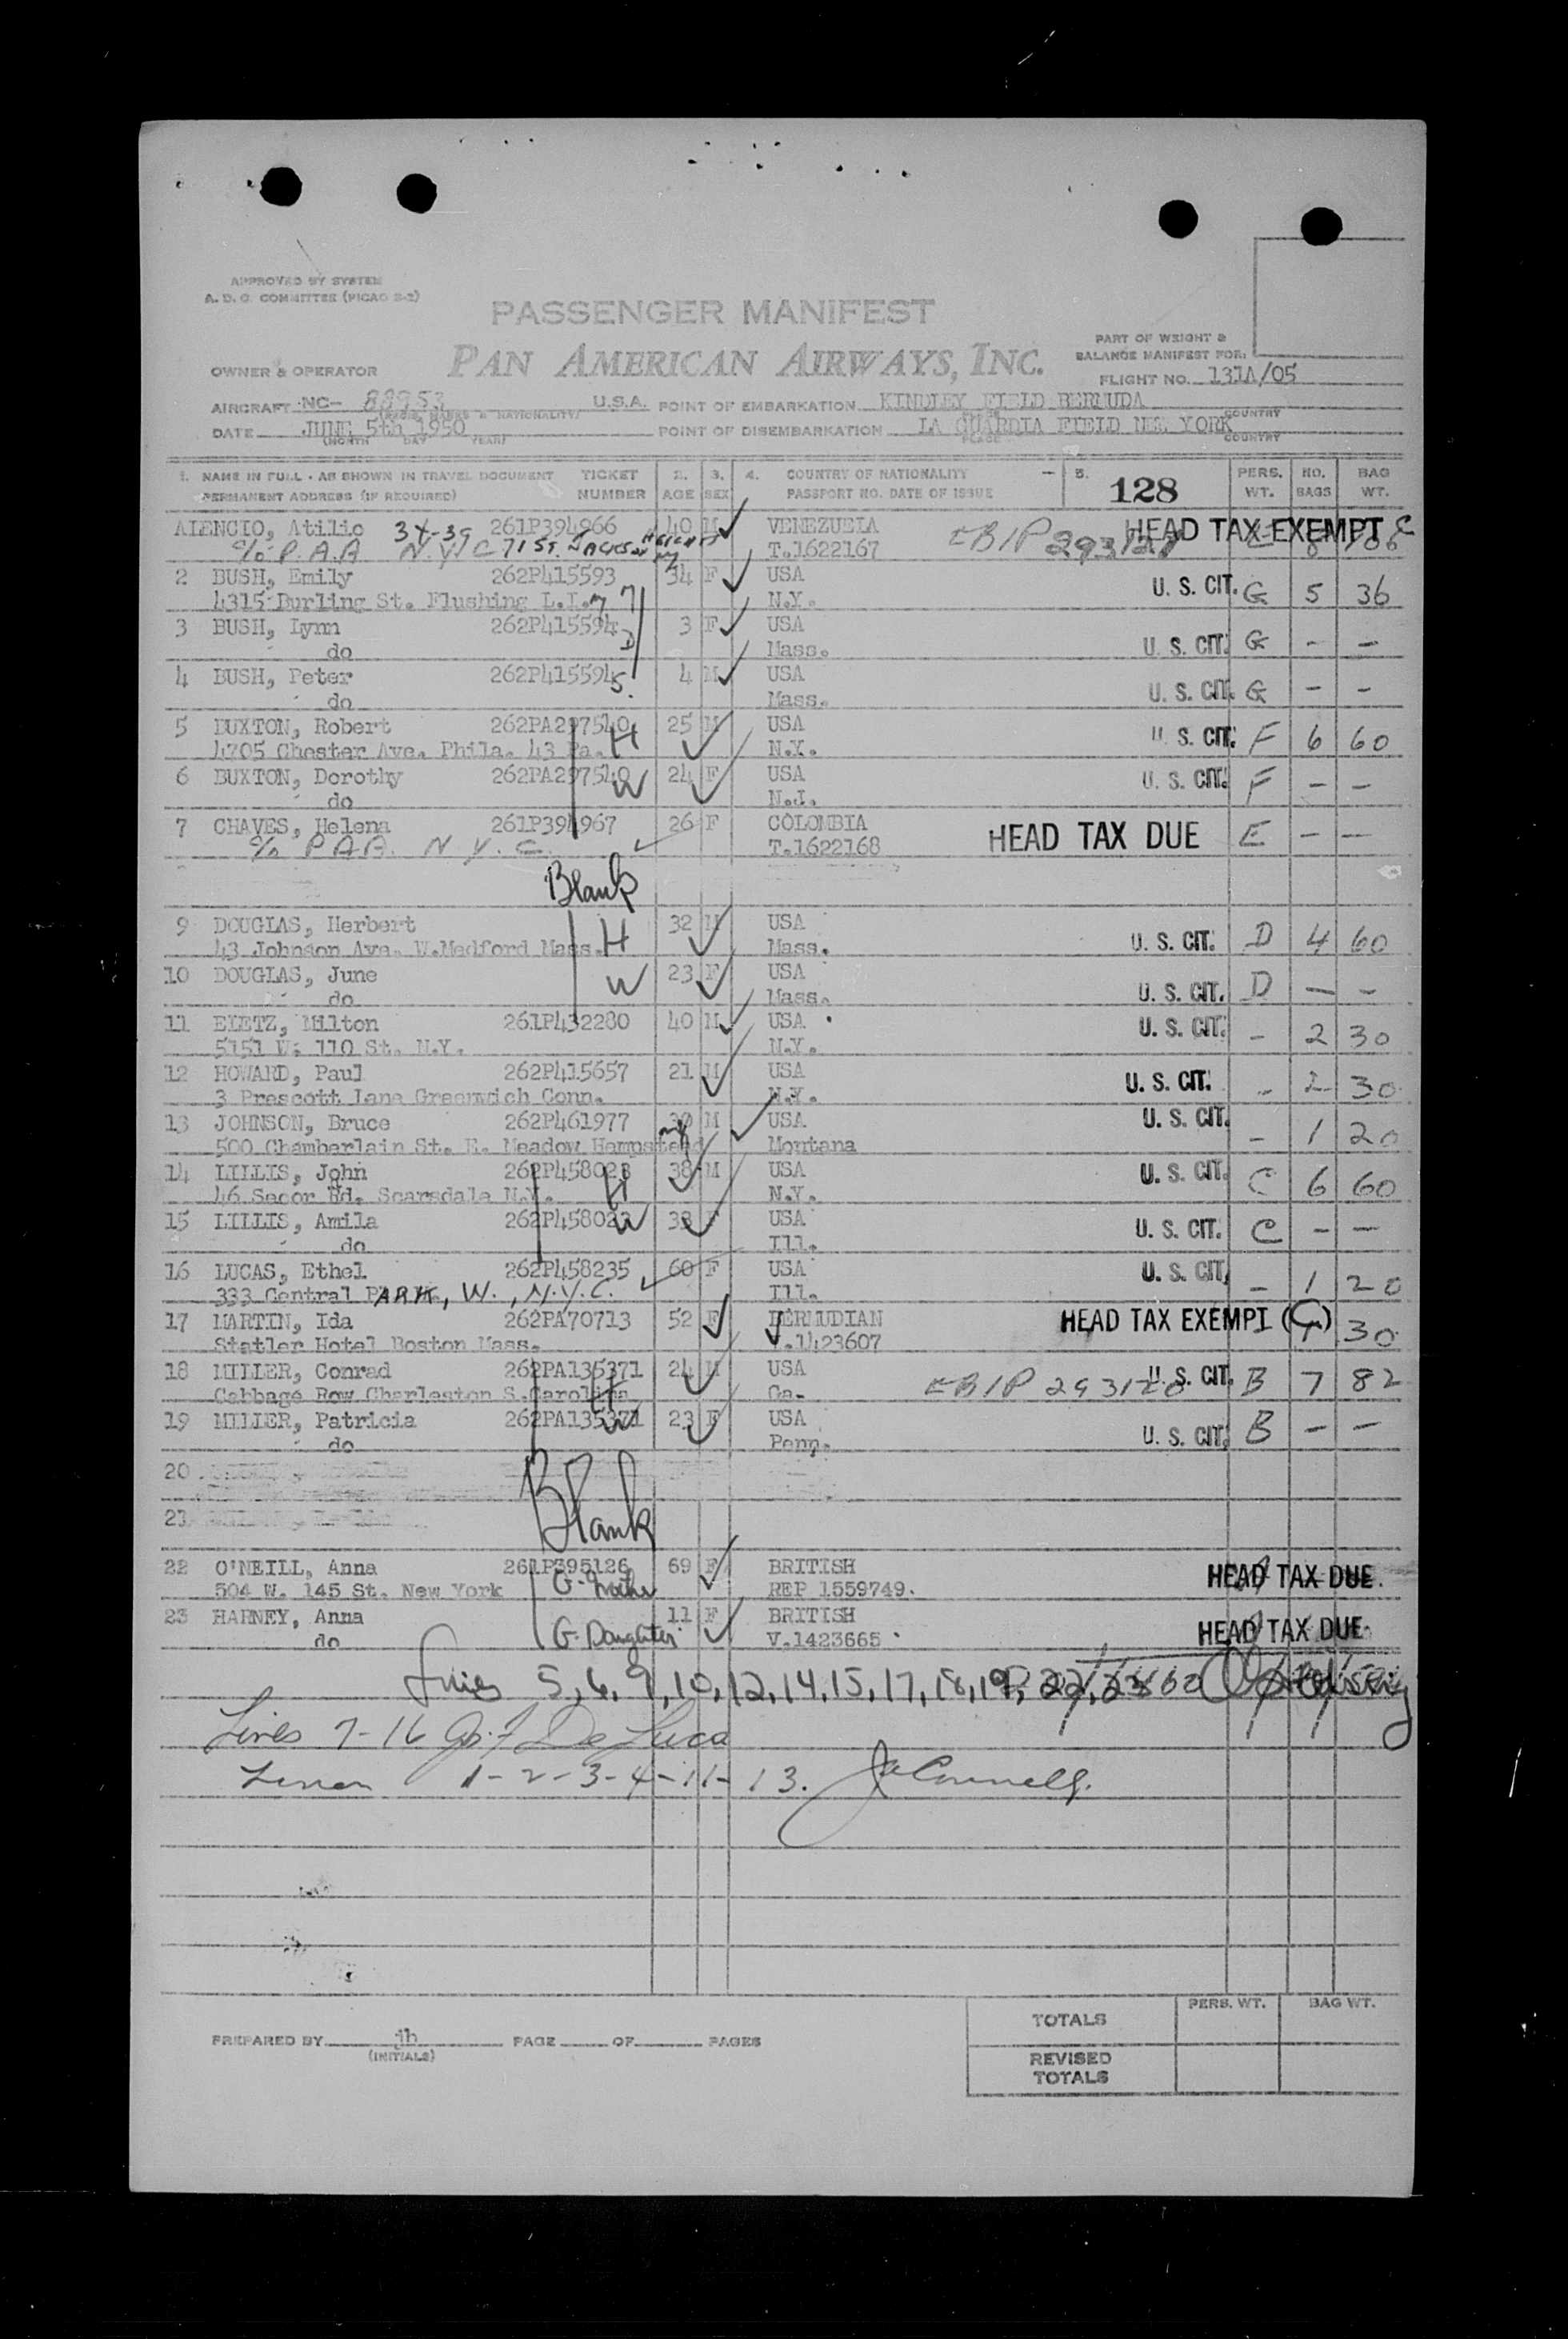 APPROVED BY SYSTEM
A. D. C. COMMITTEE (PICAO 2-2)
PASSENGER MANIFEST
PART OF WEIGHT &
BALANCE MANIFEST FOR:
OWNER & OPERATOR PAN AMERICAN AIRWAYS, INC.
FLIGHT NO. 131A/05
AIRCRAFT NC- 88953 U.S.A. POINT OF EMBARKATION KINDLEY FIELD BERMUDA
(REGIS. MARKS & NATIONALITY) PLACE COUNTRY
DATE JUNE 5th 1950 POINT OF DISEMBARKATION LA GUARDIA FIELD NEW YORK
(MONTH DAY YEAR) PLACE COUNTRY
1. NAME IN FULL - AS SHOWN IN TRAVEL DOCUMENT TICKET 2. 3. 4. COUNTRY OF NATIONALITY 5. 128 PERS. NO. BAG
PERMANENT ADDRESS (IF REQUIRED) NUMBER AGE SEX PASSPORT NO. DATE OF ISSUE WT. BAGS WT.
ATENCIO, Atilio 34-39 261P394966 40 M VENEZUELA HEAD TAX EXEMPT
c/o P.A.A N.Y.C 71 ST. JACKSON HEIGHTS NY T.1622167 EBIP
2 BUSH, Emily 262P415593 34 F USA U. S. CIT. G 5 36
4315 Burling St. Flushing L.I. N.Y.
3 BUSH, Lynn 262P415594 3 F USA
do D Mass. U. S. CIT. G - -
4 BUSH, Peter 262P415594 4 M USA
do S. Mass. U. S. CIT. G - -
5 BUXTON, Robert 262PA297540 25 M USA
4705 Chester Ave. Phila. 43 Pa. H N.Y. U. S. CIT. F 6 60
6 BUXTON, Dorothy 262PA297540 24 F USA
do W N.J. U. S. CIT. F - -
7 CHAVES, Helena 261P394967 26 F COLOMBIA
c/o P.A.A. N.Y.C. T.1622168 HEAD TAX DUE E - -
Blank
9 DOUGLAS, Herbert 32 M USA
43 Johnson Ave. W.Medford Mass. H Mass. U. S. CIT. D 4 60
10 DOUGLAS, June 23 F USA
do W Mass. U. S. CIT. D - -
11 EIETZ, Milton 261P432280 40 M USA
5151 W. 110 St. N.Y. N.Y. U. S. CIT. - 2 30
12 HOWARD, Paul 262P415657 21 M USA
3 Prescott Lane Greenwich Conn. N.Y. U. S. CIT. - 2 30
13 JOHNSON, Bruce 262P461977 30 M USA
500 Chamberlain St. E. Meadow Hempstead NY Montana U. S. CIT. - 1 20
14 LILLIS, John 262P458023 38 M USA
46 Secor Rd. Scarsdale N.Y. H N.Y. U. S. CIT. C 6 60
15 LILLIS, Amila 262P458023 W 38 F USA
do Ill. U. S. CIT. C - -
16 LUCAS, Ethel 262P458235 60 F USA
333 Central PARK, W., N.Y.C. Ill. U. S. CIT. - 1 20
17 MARTIN, Ida 262PA70713 52 F BERMUDIAN HEAD TAX EXEMPT (G) 30
Statler Hotel Boston Mass. V.1423607
18 MILLER, Conrad 262PA135371 24 M USA
Cabbage Row Charleston S.Carolina H Ga. EBIP 293120 U. S. CIT. B 7 82
19 MILLER, Patricia 262PA135371 W 23 F USA
do Penn. U. S. CIT. B - -
20
Blank
21
22 O'NEILL, Anna 261P395126 69 F BRITISH
504 W. 145 St. New York G-Mother REP 1559749. HEAD TAX DUE.
23 HARNEY, Anna 11 F BRITISH
do G-Daughter V.1423665 HEAD TAX DUE
Lines 5, 6, 9, 10, 12, 14, 15, 17, 18, 19, 22, 23
Lines 7-16 De Luca
Lines 1-2-3-4-11-13.
TOTALS PERS. WT. BAG WT.
PREPARED BY jh PAGE OF PAGES
(INITIALS)
REVISED
TOTALS